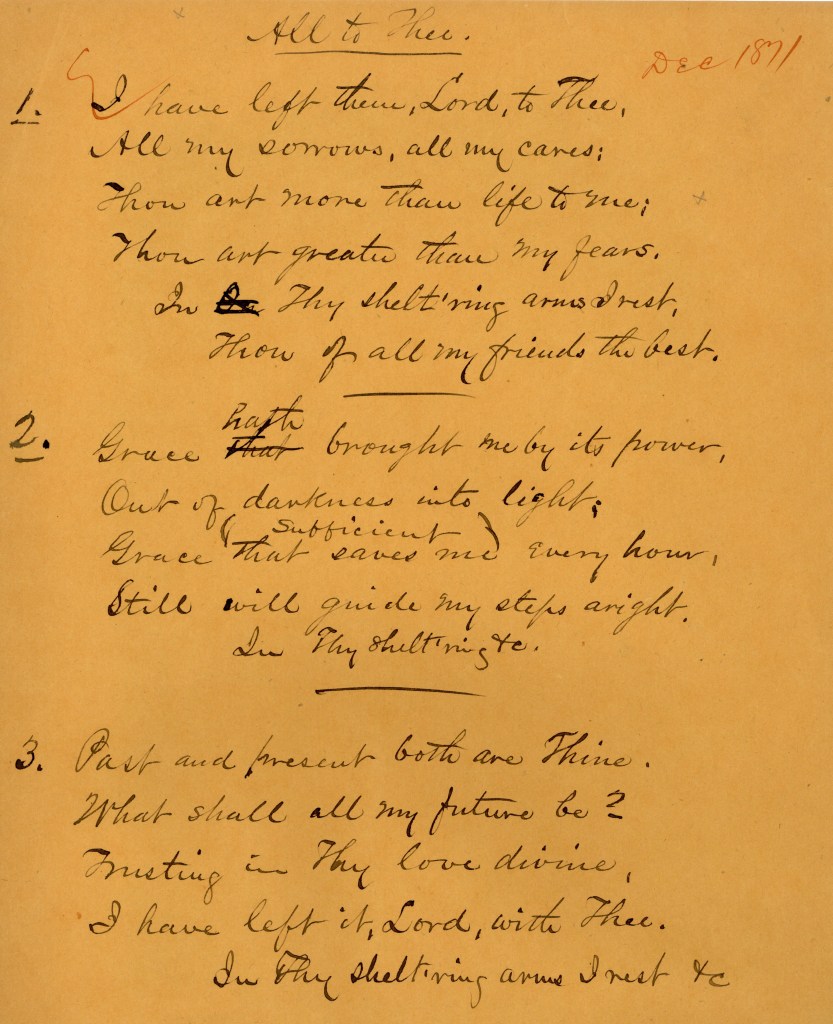 All to Thee.
Dec 1871
1. I have left them, Lord, to Thee,
All my sorrows, all my cares;
Thou art more than life to me;
Thou art greater than my fears.
In Thy shelt'ring arms I rest,
Thou of all my friends the best.
hath
2. Grace that brought me by its power,
Out of darkness into light;
(Sufficient)
Grace that saves me every hour,
Still will guide my steps aright.
In Thy shelt'ring &c.
3. Past and present both are Thine.
What shall all my future be?
Trusting in Thy love divine,
I have left it, Lord, with Thee.
In Thy shelt'ring arms I rest &c